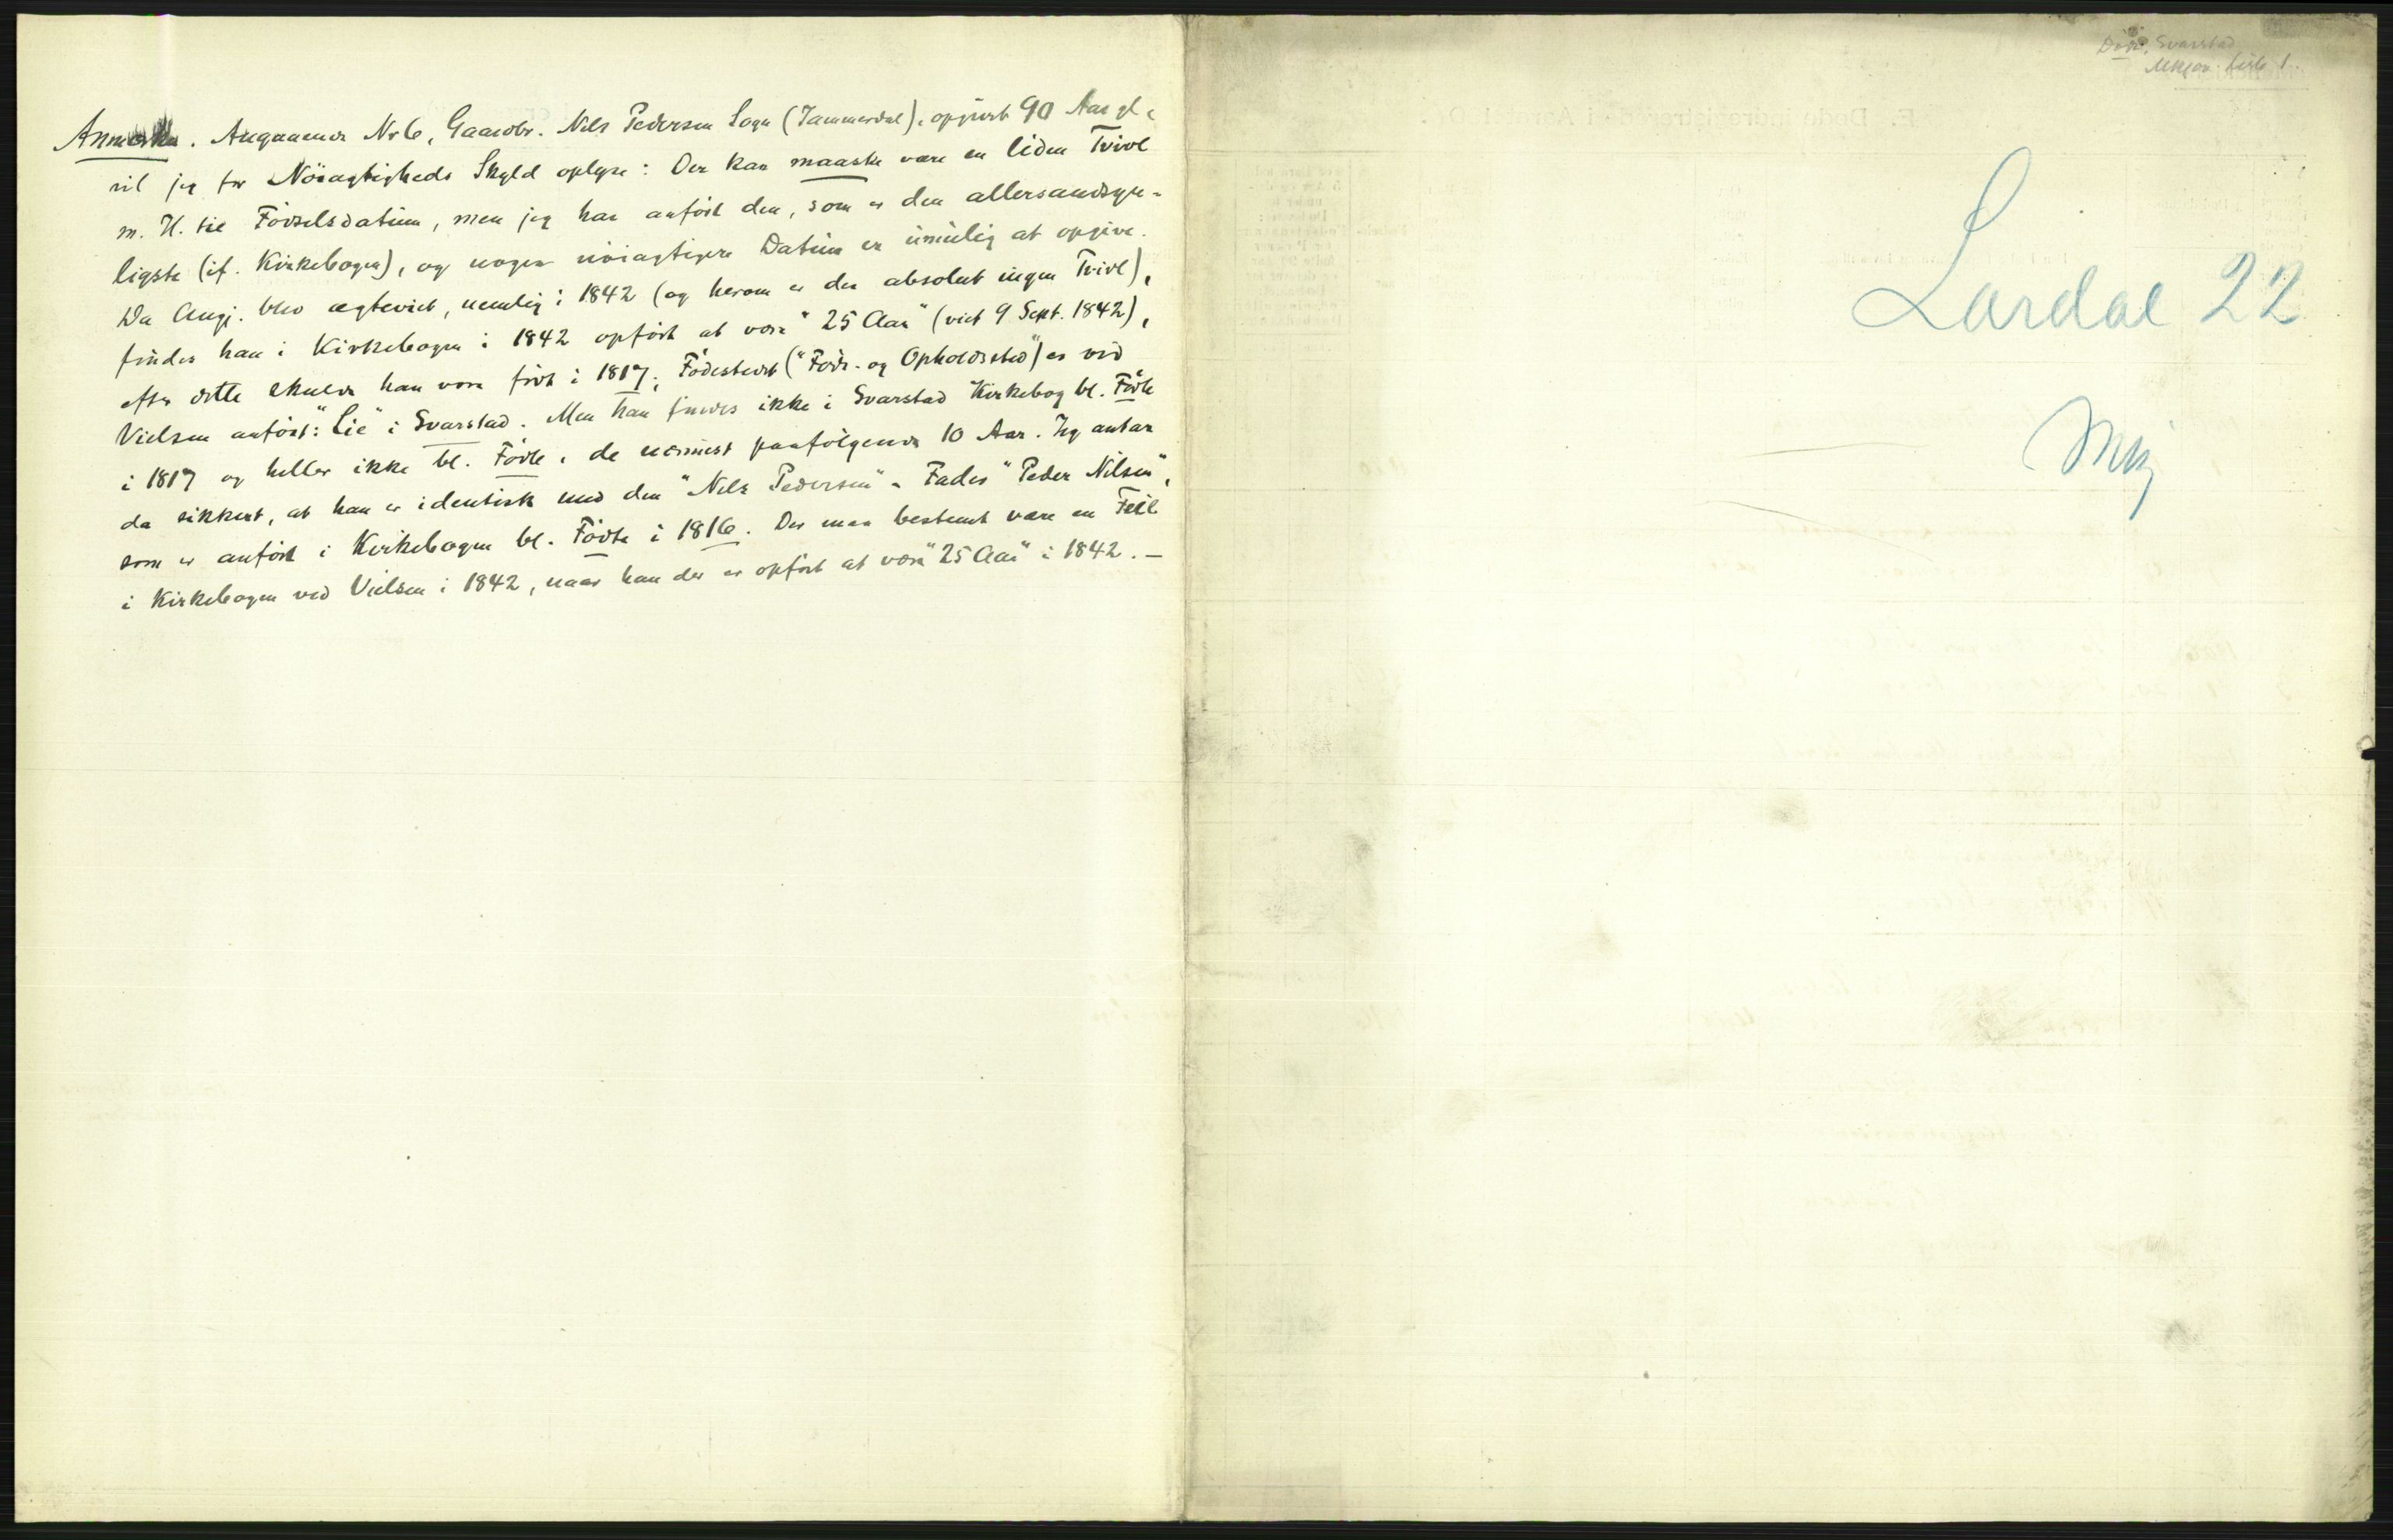 Anmerkn. Angaaende Nr 6, Gaardbr. Nils Pedersen Sogn (Tammerdal), opgivet 90 Aar gl.,
vil jeg for Nöiagtigheds Skyld oplyse: Der kan maaske være en liden Tvivl
m. H. til Födselsdatum, men jeg har anfört den, som er den allersandsyn-
ligste (if. Kirkebogen), og nogen nöiagtigere Datum er umulig at opgive.
Da Angj. blev ægteviet, nemlig i 1842 (og herom er der absolut ingen Tvivl),
findes han i Kirkebogen i 1842 opfört at være "25 Aar" (viet 9 Sept. 1842),
efter dette skulde han være födt i 1817; Födestedet ("Föde- og Opholdssted") er ved
Vielsen anfört: "Lie" i Svarstad. Men han findes ikke i Svarstad Kirkebog bl. Födte
i 1817 og heller ikke bl. Födte i de nærmest paafölgende 10 Aar. Jeg antar
da sikkert, at han er identisk med den "Nils Pedersen" - Fader "Peder Nilsen",
som er anfört i Kirkebogen bl. Födte i 1816. Der maa bestemt være en Feil
i Kirkebogen ved Vielsen i 1842, naar han der er opfört at være "25 Aar" i 1842. —
Svarstad
Lardal 22